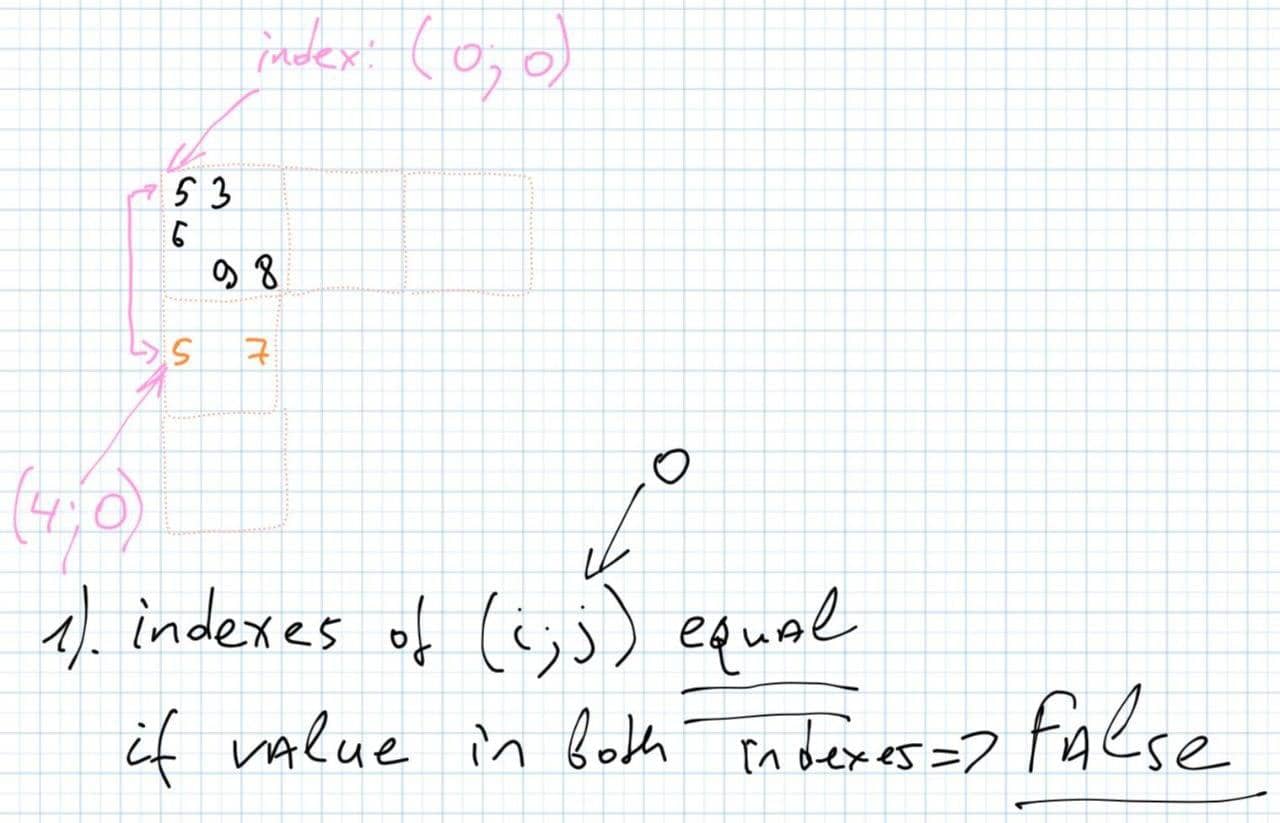 index: (0; 0)
5 3
6
9 8
5 7
(4; 0)
0
1). indexes of (i; j) equal
if value in both indexes => False